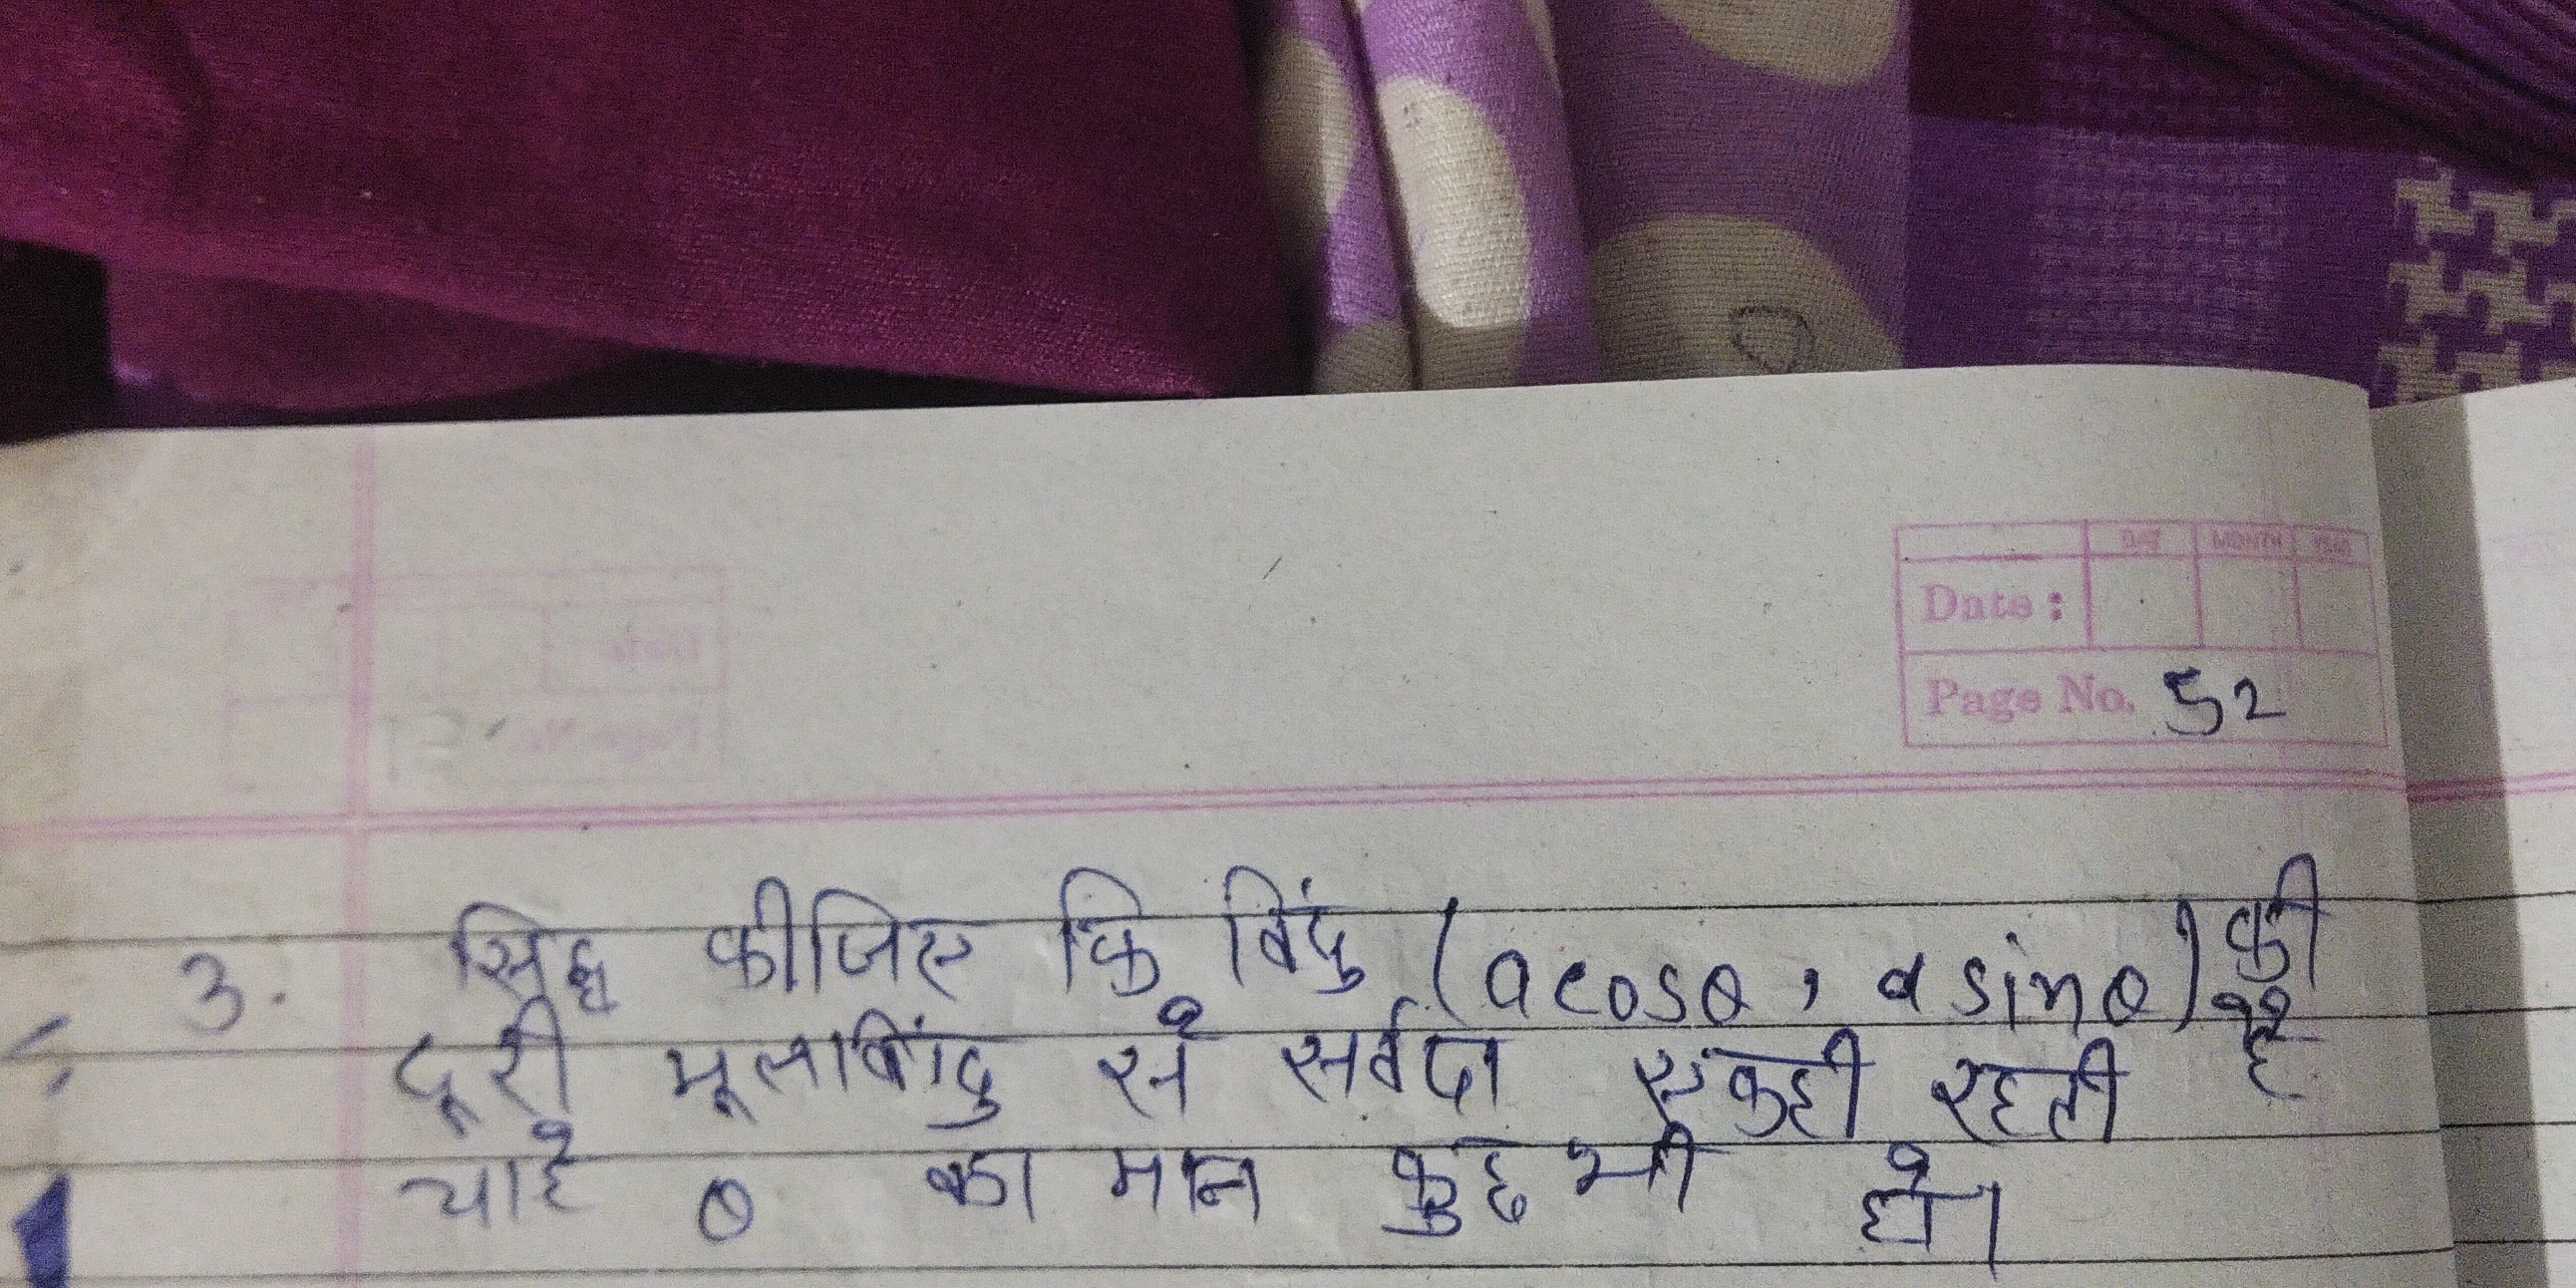 DAY MONTH YEAR
Date :
Page No. 52
3. सिद्ध कीजिए कि बिंदु (a cosθ, a sinθ) की
दूरी मूलबिंदु से सर्वदा एकही रहती है
चाहे θ का मान कुछ भी हो।